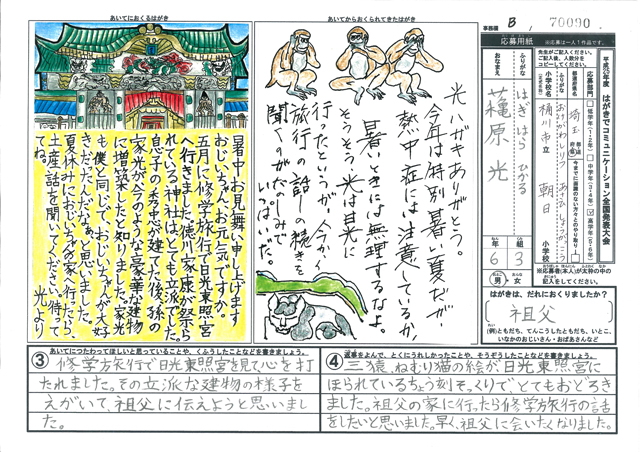 あいてにおくるはがき
暑中お見舞い申し上げます
おじいちゃん、お元気ですか。
五月に修学旅行で日光東照宮
へ行きました。徳川家康が祭ら
れている神社はとても立派でした。
息子の秀忠が建てた後、孫の
家光が今のような豪華な建物
に増築したと知りました。家光
も僕と同じで、おじいちゃんが大好
きだったんだなぁと思いました。
夏休みにおじいちゃんの家へ行ったら、
土産話を聞いてください。待ってて
ね。
光より
あいてからおくられてきたはがき
光ハガキありがとう。
今年は特別暑い夏だが、
熱中症には注意しているか、
暑いときには無理するなよ。
そうそう光は日光に
行ったというが、今から
旅行の話しの続きを
聞くのがたのしみで
いっぱいだ。
事務欄 B / 70090
応募用紙 ※応募は一人1作品です。
平成25年度 はがきでコミュニケーション全国発表大会
応募部門
低学年(1・2年)
中学年(3・4年)
高学年(5・6年)
都道府県名
埼玉
小学校名
桶川市立 朝日 小学校
ふりがな
はぎはら ひかる
おなまえ
萑原 光
年 6
組 3
男 女
※応募者(本人)が太枠の中の
記入をしてください。
はがきは、だれにおくりましたか?
祖父
(例)ともだち、てんこうしたともだち、いとこ、
いなかのおじいさん・おばあさんなど
③ あいてにつたわってほしいと思っていることや、くふうしたことなどを書きましょう。
修学旅行で日光東照宮を見て心を打
たれました。その立派な建物の様子を
えがいて、祖父に伝えようと思いまし
た。
④ 返事をよんで、とくにうれしかったことや、そうぞうしたことなどを書きましょう。
三猿、ねむり猫の絵が日光東照宮に
ほられているちょう刻そっくりで、とてもおどろき
ました。祖父の家に行ったら修学旅行の話
をしたいと思いました。早く、祖父に会いたくなりました。